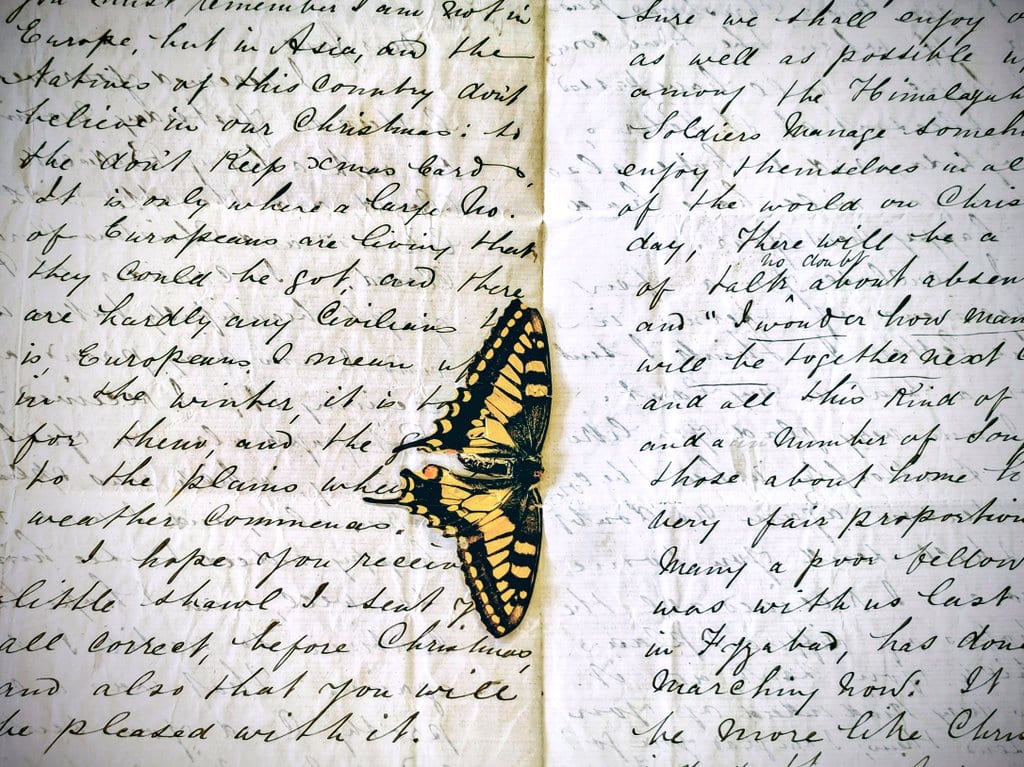 you must remember I am not in
Europe, but in Asia, and the
natives of this Country don't
believe in our Christmas: so
the don't Keep Xmas Cards,
It is only where a large No.
of Europeans are living that
they Could be got, and there
are hardly any Civilians
is, Europeans I mean
in the winter, it is
for them, and the
to the plains when
weather Commences.
I hope you
little shawl I sent
all correct, before Christmas,
and also that you will
be pleased with it.
Sure we shall enjoy
as well as possible
among the
Soldiers Manage
enjoy themselves in
of the world on
day, There will be a
no doubt
of talk about
and "I wonder how
will be together next
and all this Kind of
and a Number of
those about home
Very fair
Many a poor
was with us last
in Fyzabad, has
Marching Now: It
be More like